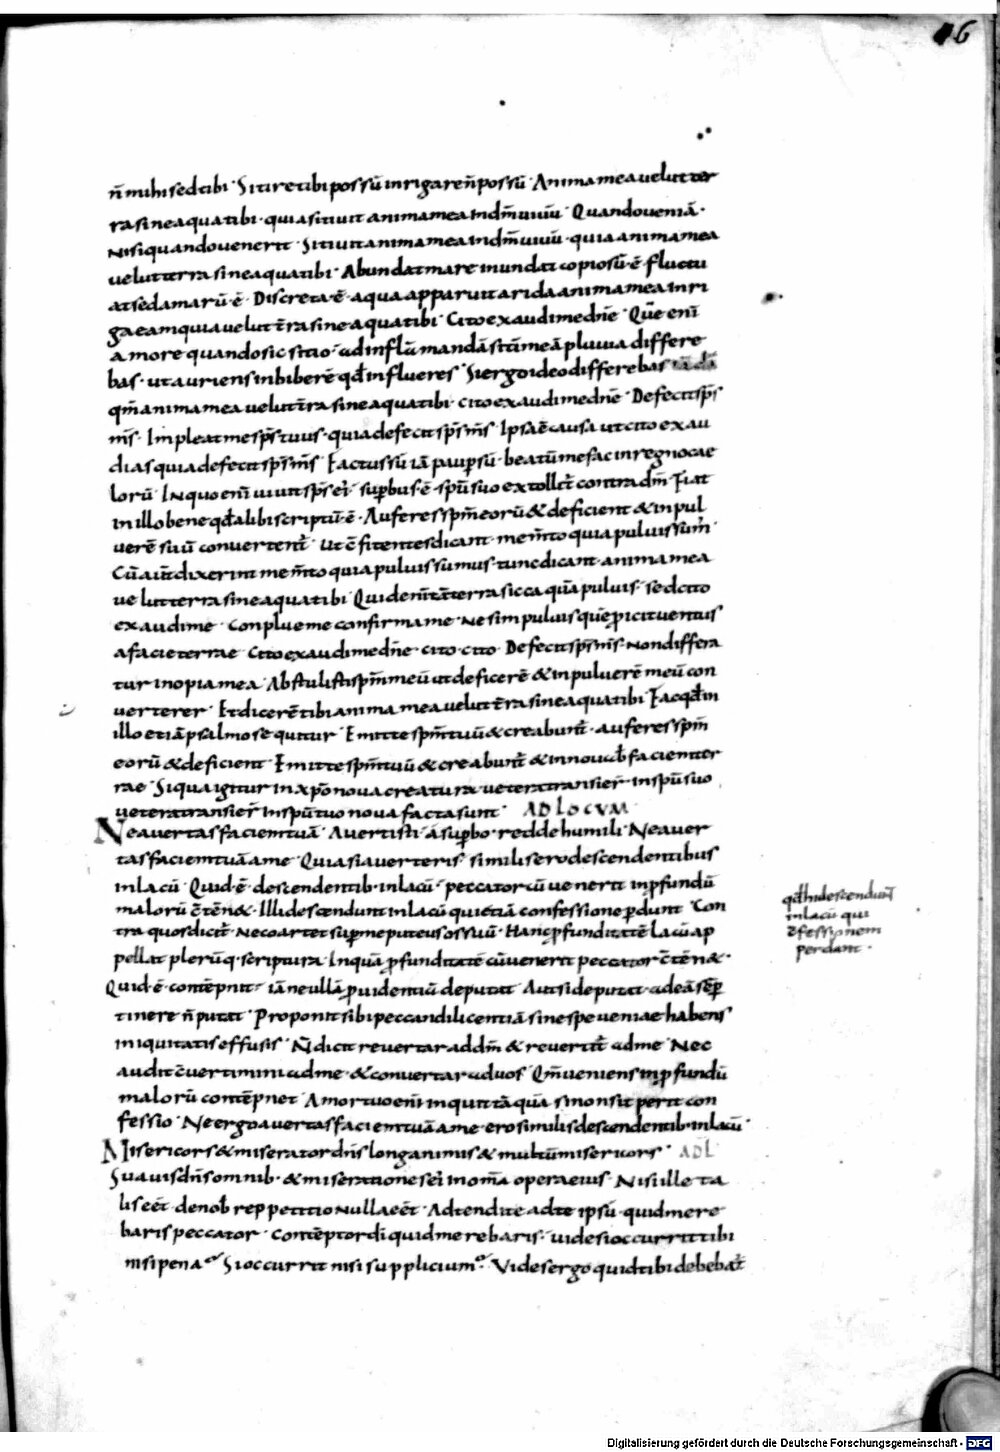 16
n̄ mihi sed tibi · Sitire tibi possū inrigare n̄ possū · Anima mea velut ter
ra sine aqua tibi · quia sitivit anima mea In dm̄ vivū · Quando veniā ·
Nisi quando venerit · Sitivit anima mea In dm̄ vivū · quia anima mea
velut terra sine aqua tibi · Abundat mare inundat copiosū · ē fluctu
at sed amarū · ē · Discreta · ē · aqua apparuit arida anima mea Inri
ga eam quia velut t̄ra sine aqua tibi · Cito exaudi me dn̄e · Que enī
a more quando sic sitio · ad inflā mandā sitī meā pluvia differe
bas · ut auriens inbiberē qd̄ influeres · Si ergo ideo differebas
qm̄ anima mea velut t̄ra sine aqua tibi · cito exaudi me dn̄e · Defecit sp̄s
m̄s · Impleat me sp̄s tuus · quia defecit sp̄s m̄s · Ipsa ē causa ut cito exau
dias quia defecit sp̄s m̄s · Factus sū iā paup̄ sū · beatū me fac in regno cae
lorū · In quo enī vivit sp̄s ei · sup̄bus · ē · sp̄u suo extollit̄ contra dm̄ · Fiat
in illo bene qd̄ alibi scriptū · ē · Auferes sp̄m eorū & deficient & in pul
verē suū convertent̄ · Ut c̄fitentes dicant · mem̄to quia pulvis sum̄
Cū aut̄ dixerint mem̄to quia pulvis sumus · tunc dicant · anima mea
velut terra sine aqua tibi · Quid enī tā terra sicca quā pulvis · sed cito
exaudi me · Conplue me confirma me · Ne sim pulvis quē p̄icit ventus
a facie terrae · Cito exaudi me dn̄e · cito · cito · Defecit sp̄s m̄s · Non differa
tur inopia mea · Abstulisti sp̄m meū ut deficerē & in pulverē meū con
verterer · Et dicerē tibi anima mea velut t̄ra sine aqua tibi · Fac qd̄ in
illo etiā psalmo sequitur · Emitte sp̄m tuū & creabunt̄ · auferes sp̄m
eorū & deficient · Emitte sp̄m tuū & creabunt̄ & innovab̄ faciem ter
rae · Si qua igitur in xp̄o nova creatura vetera transier̄ · in sp̄u suo
vetera transier̄ In sp̄u tuo nova facta sunt · AD LOCVM
Ne avertas faciem tuā · Avertisti a sup̄bo · redde humili · Ne aver
tas faciem tuā a me · Quia si averteris · similis ero descendentibus
in lacū · Quid · ē · descendentib · in lacū · peccator cū venerit in p̄fundū
malorū c̄tēn& · Illi descendunt in lacū qui etiā confessione p̄dunt · Con
tra quos dicit̄ · Nec oartet sup̄ me puteus os suū · Hanc p̄funditatē lacū ap
pellat plerūq · scriptura · In quā p̄funditatē cū venerit peccator c̄tēn& ·
Quid · ē · contēpnit · iā nullā p̄videntiā deputat · Aut si deputat · ad eā sē p̄
tinere n̄ putat · Proponit sibi peccandi licentiā sine spe veniae habens
iniquitatis effusis · N̄ dicit revertar ad dm̄ & revertit̄ ad me · Nec
audit c̄vertimini ad me · & convertar ad vos · Qm̄ veniens in p̄fundū
malorū contēpnet · A mortuo enī inquit tā quā si non sit perit con
fessio · Ne ergo avertas faciem tuā a me · ero similis descendentib · in lacū ·
Misericors & miserator dn̄s longanimis & multū misericors · AD L
Suavis dn̄s omnib · & miserationes ei · in om̄a opera eius · Nisi ille ta
lis eēt · de nob̄ reppetitio nulla eēt · Adtendite ad te ipsū · quid mere
baris peccator · contēptor di quid merebaris · vide si occurrit tibi
nisi pena · Si occurrit nisi supplicium · Vides ergo quid tibi debebat̄
qd̄ hi descendunt
in lacū qui
c̄fessionem
perdant ·
Digitalisierung gefördert durch die Deutsche Forschungsgemeinschaft - DFG